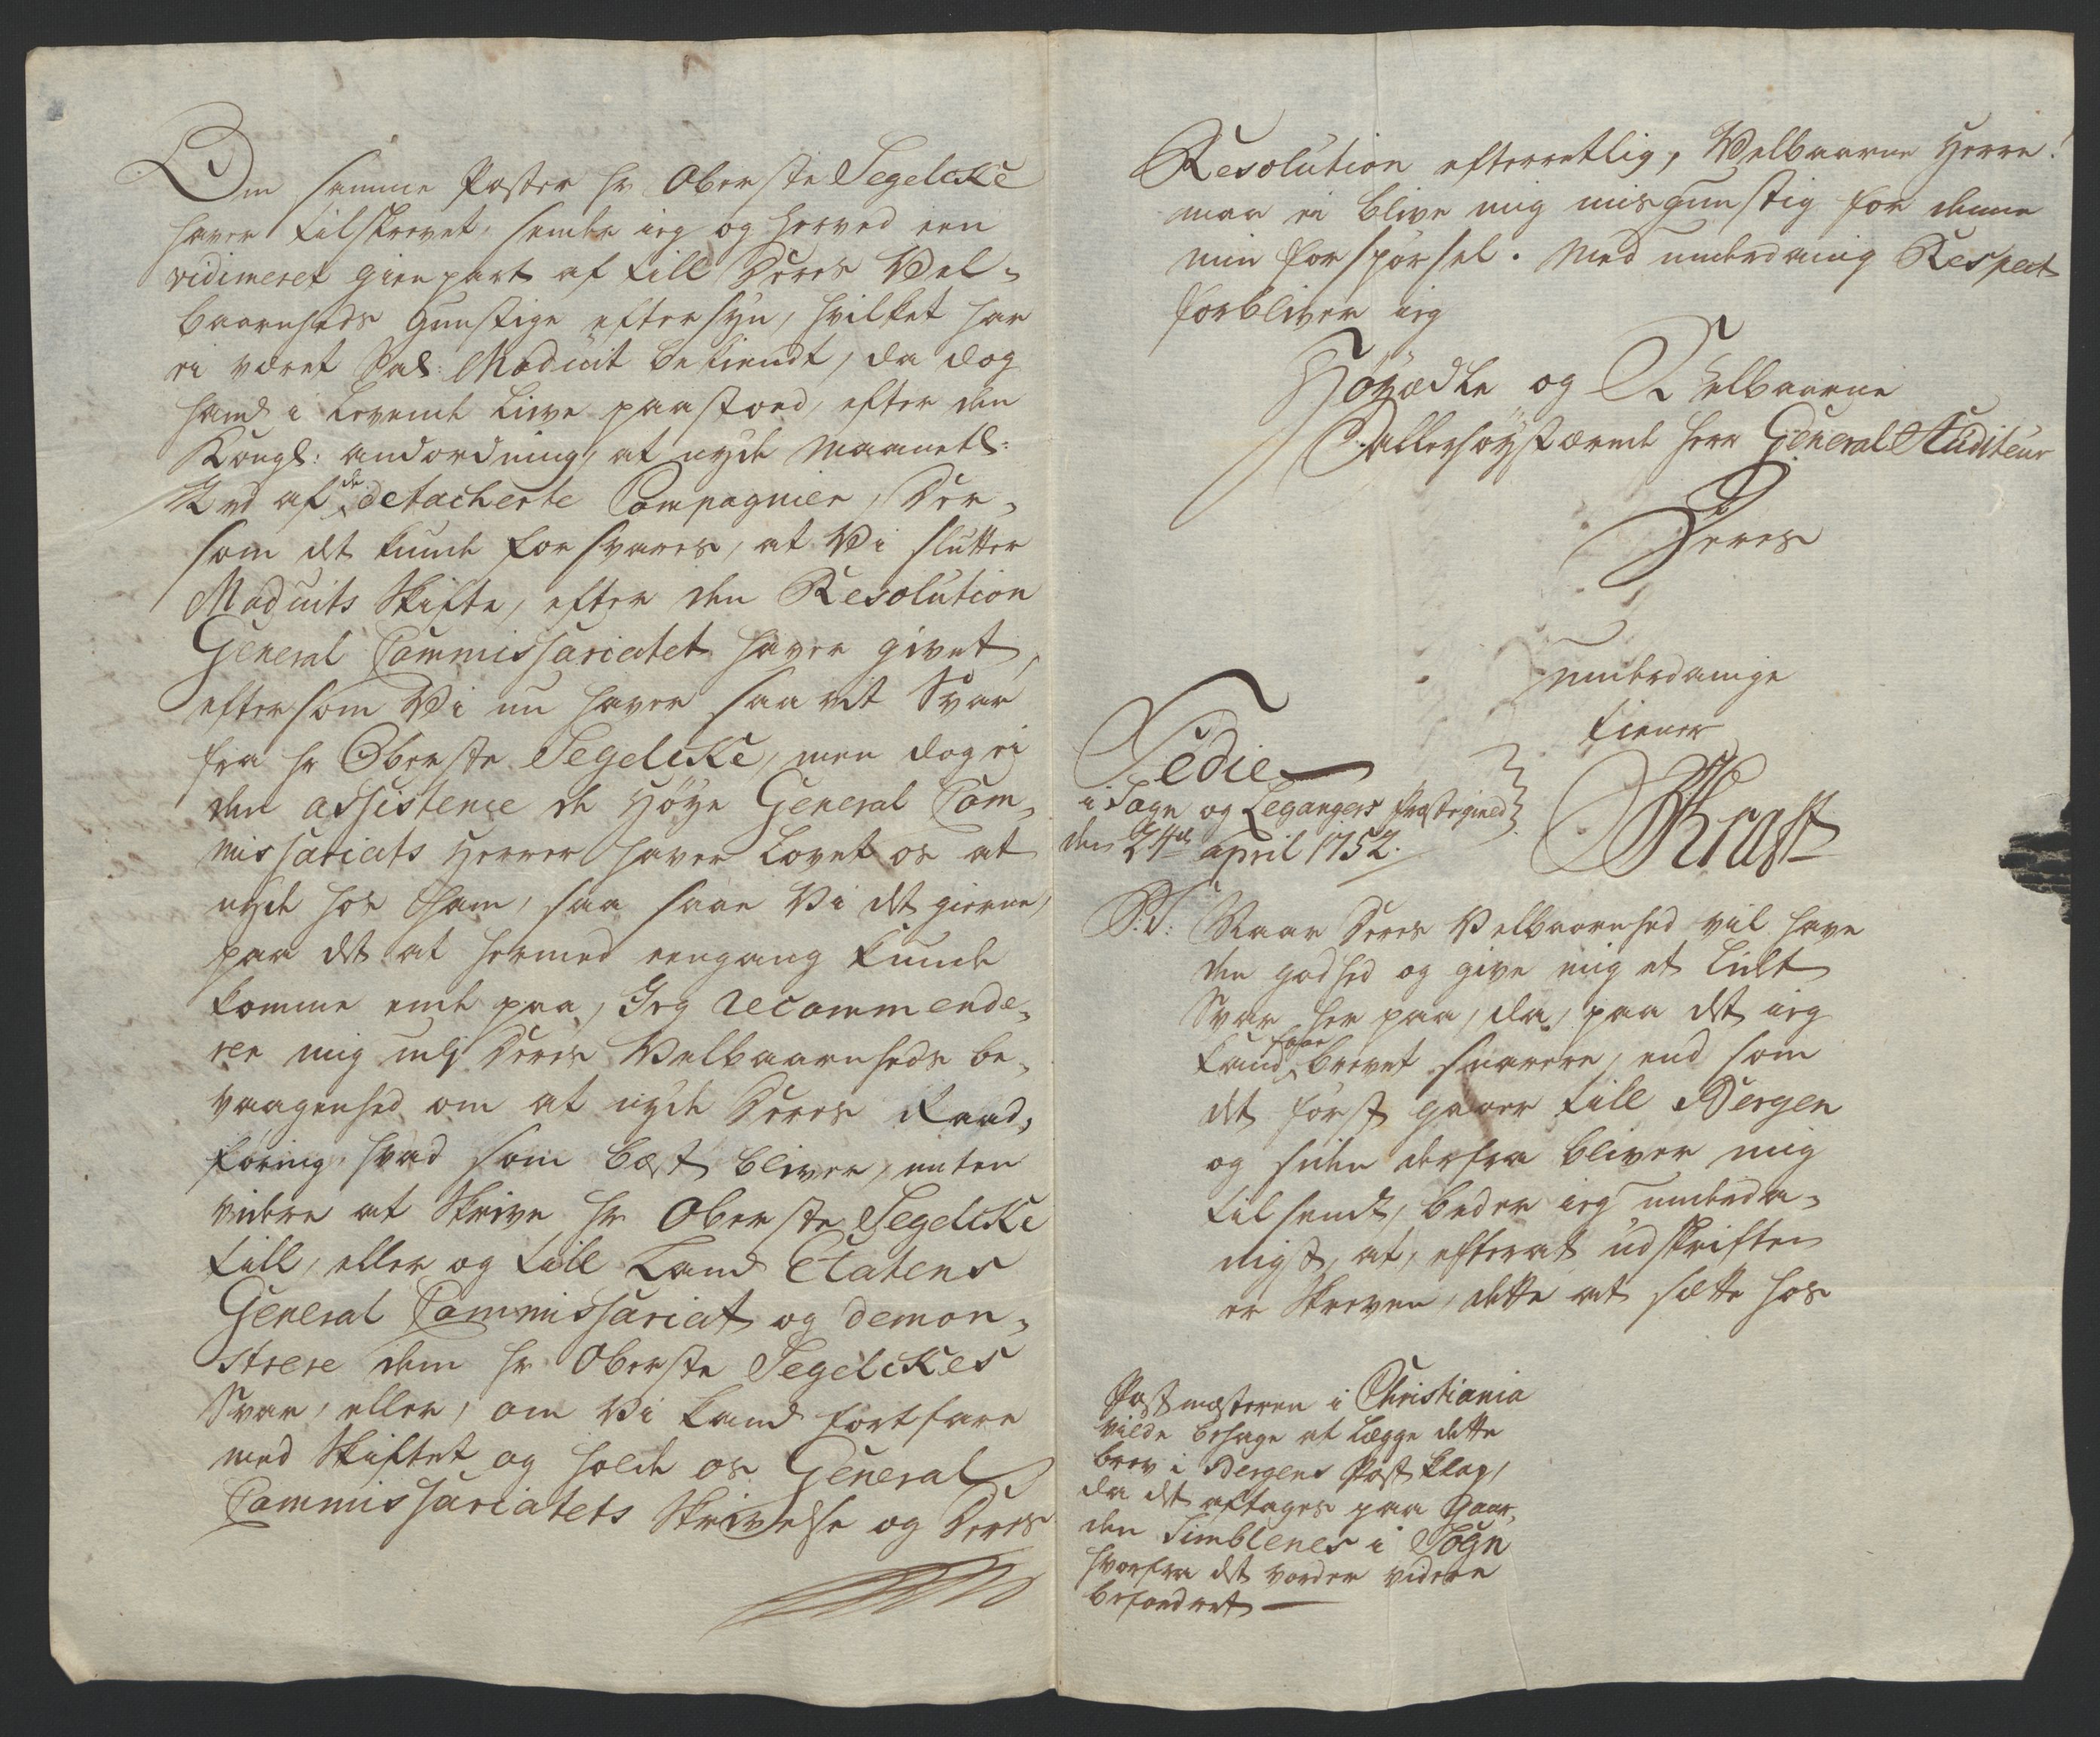 Om samme Poster hr Oberste Segelcke
haver tilskrevet, sender ieg og herved een
vidimeret gienpart af till Deres Vel-
baarnheds Gunstige eftersyn, hvilket har
ei været Sal: Maduit bekiendt, da dog
hand i levende Live paastoed, efter den
Kongl: anordning, at nyde Maanetl:
af de detacherte Compagnier, Der-
som det kunde forsvares, at Vi slutter
Maduits Skifte, efter den Resolution
General Commissariatet haver givet,
eftersom Vi nu haver saa vit Svar
fra hr Oberste Segelcke, men dog ei
den assistence de Høye General Com-
missariats Herrer haver Lovet os at
nyde hos ham, saa saae Vi det gierne,
paa det at hermed eengang kunde
komme ende paa, Jeg recommende-
rer mig udj Deres Velbaarnheds be-
vaagenhed om at nyde Deres Raad-
føring, hvad som best bliver, enten
videre at Skrive hr Oberste Segelcke
till, eller og till Land Etatens
General Commissariat og demon-
strere dem hr Oberste Segelckes
Svar, eller, om Vi kand fortfare
med Skiftet og holde os General
Commissariatets Skrivelse og Deres
Resolution efterretlig, Velbaarne Herre!
maa ei blive mig misgunstig for denne
min forspørsel. Med underdanig Respect
forbliver ieg
Høyædle og Velbaarne
Allerhøystærede Herr General Auditeur
Deres
underdanige
tiener
Kraft
Tedie
i Sogn og Legangers Præstegield
den 24de april 1752.
P:S: Naar Deres Velbaarnhed vil have
den godhed og give mig et lidt
Svar her paa, da, paa det ieg
kand faae brevet snarere, end som
det først gaaer till Bergen
og siden derfra bliver mig
tilsendt, beder ieg underda-
nigst, at, efterat udskriften
er Skreven, dette at sætte hos
Postmesteren i Christiania
vilde behage at legge dette
brev i Bergens Post klap,
da det aftages paa Gaar-
den Simblenes i Sogn
hvorfra det vorder videre
befordret —